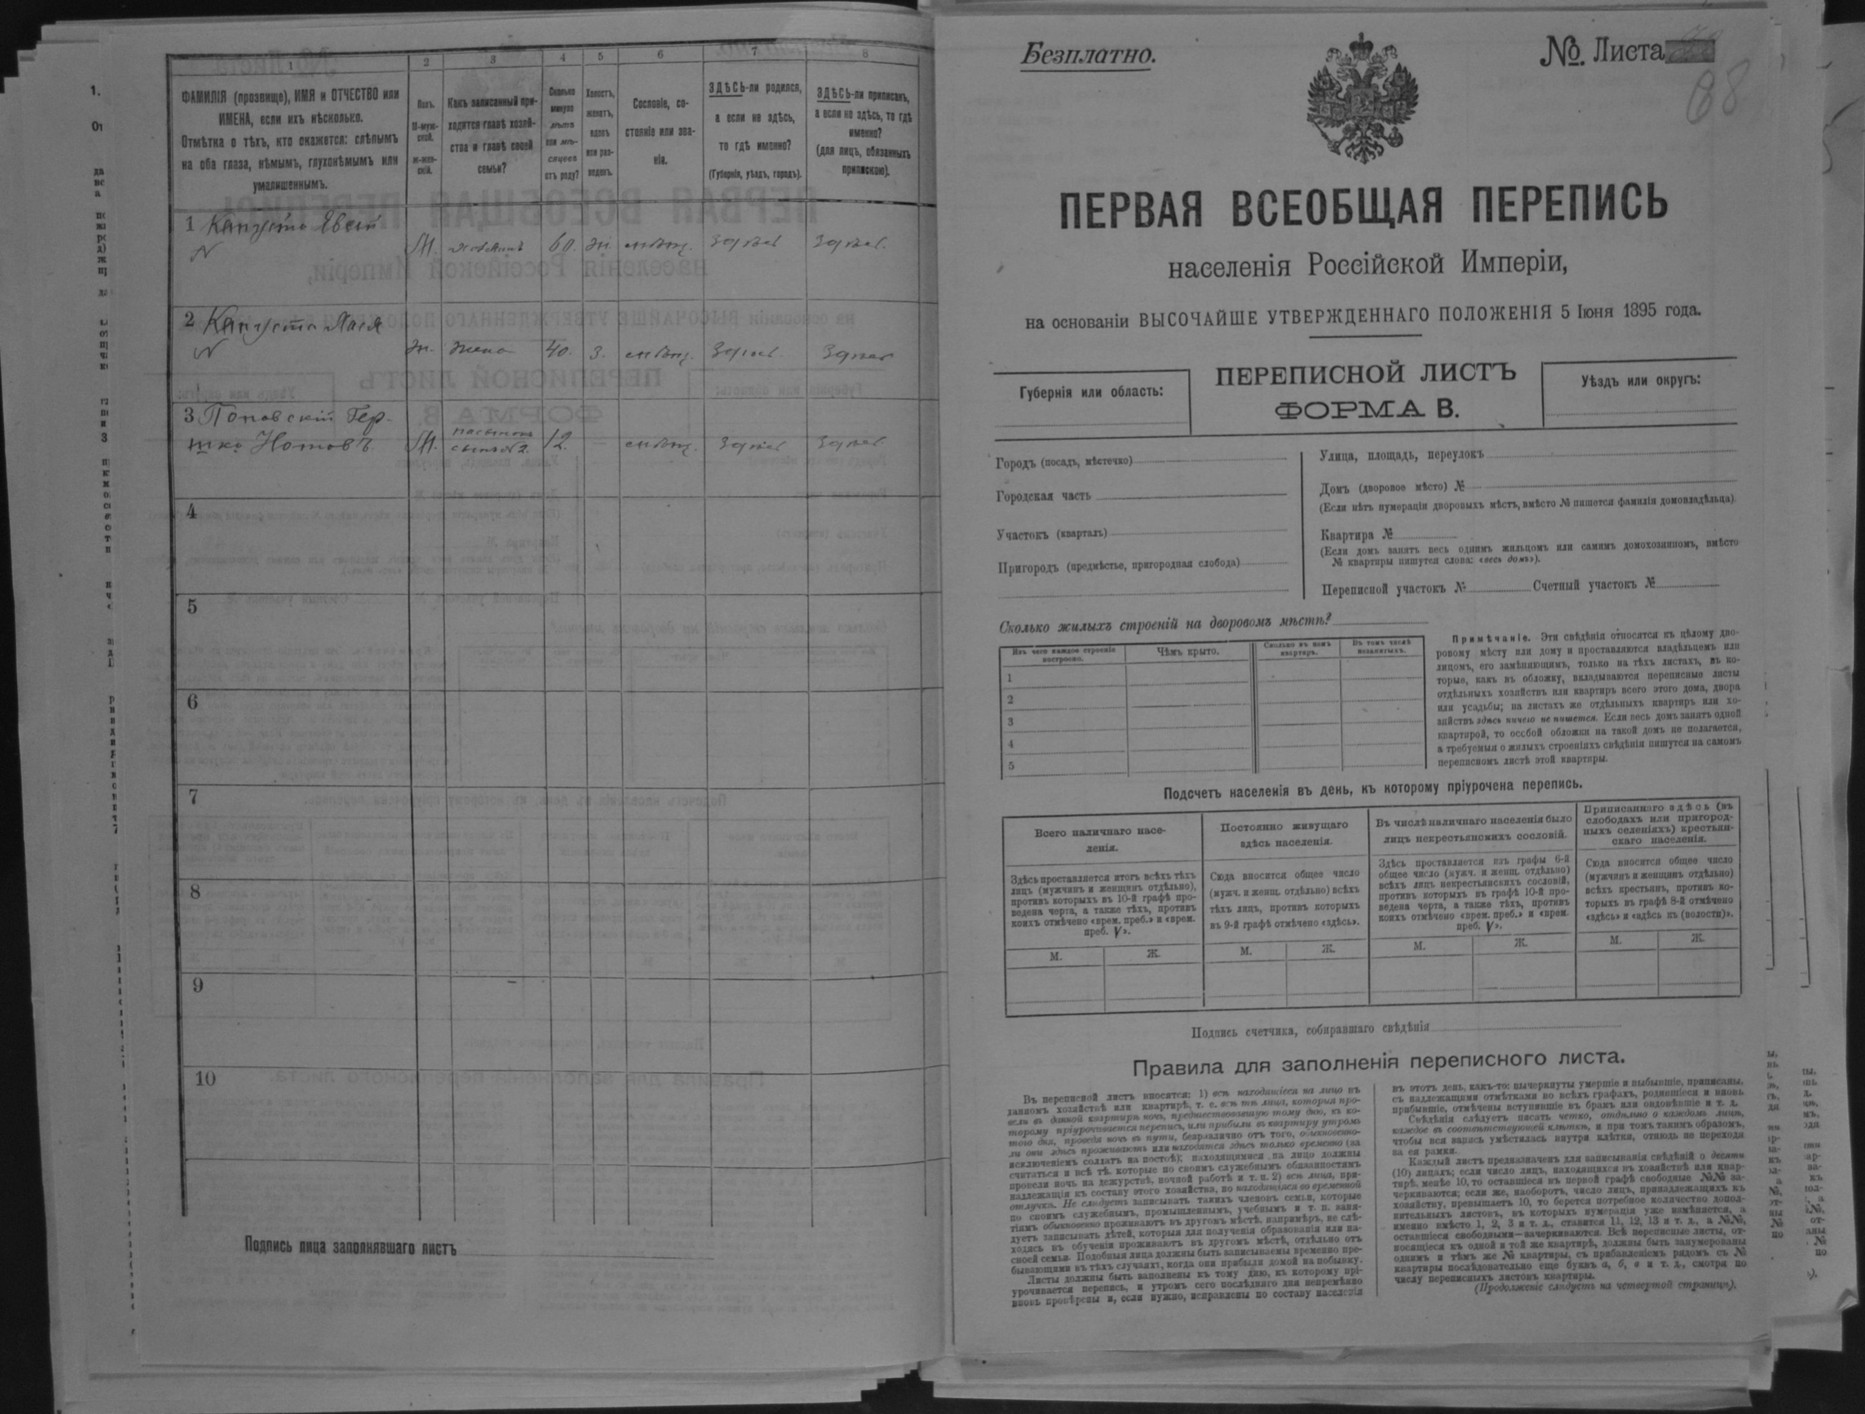 1 2 3 4 5 6 7 8
ФАМИЛІЯ (прозвище), ИМЯ и ОТЧЕСТВО или
ИМЕНА, если ихъ нѣсколько.
Отмѣтка о тѣхъ, кто окажется: слѣпымъ
на оба глаза, нѣмымъ, глухонѣмымъ или
умалишеннымъ.
Полъ.
М-муж-
ской.
ж-жен-
скій.
Какъ записанный при-
ходится главѣ хозяй-
ства и главѣ своей
семьи?
Сколько
минуло
лѣтъ
или мѣ-
сяцевъ
отъ роду?
Холостъ,
женатъ,
вдовъ
или раз-
веденъ.
Сословіе, со-
стояніе или зва-
ніе.
ЗДѢСЬ-ли родился,
а если не здѣсь,
то гдѣ именно?
(Губернія, уѣздъ, городъ).
ЗДѢСЬ-ли приписанъ,
а если не здѣсь, то гдѣ
именно?
(для лицъ, обязанныхъ
припискою).
1 Капуста
М. 60. ж. мѣщ. здѣсь здѣсь.
2 Капуста
ж. жена 40. з. мѣщ. здѣсь. здѣсь
3 Поповскій Гер-
шко Нотовъ. М. 12. мѣщ. здѣсь здѣсь
4
5
6
7
8
9
10
Подпись лица заполнявшаго листъ
Безплатно.
№ Листа
68
ПЕРВАЯ ВСЕОБЩАЯ ПЕРЕПИСЬ
населенія Россійской Имперіи,
на основаніи ВЫСОЧАЙШЕ УТВЕРЖДЕННАГО ПОЛОЖЕНІЯ 5 Іюня 1895 года.
Губернія или область:
ПЕРЕПИСНОЙ ЛИСТЪ
ФОРМА В.
Уѣздъ или округъ:
Городъ (посадъ, мѣстечко)
Городская часть
Участокъ (кварталъ)
Пригородъ (предмѣстье, пригородная слобода)
Улица, площадь, переулокъ
Домъ (дворовое мѣсто) №
(Если нѣтъ нумераціи дворовыхъ мѣстъ, вмѣсто № пишется фамилія домовладѣльца).
Квартира №
(Если домъ занятъ весь однимъ жильцомъ или самимъ домохозяиномъ, вмѣсто
№ квартиры пишутся слова: «весь домъ»).
Переписной участокъ № Счетный участокъ №
Сколько жилыхъ строеній на дворовомъ мѣстѣ?
Изъ чего каждое строеніе
построено.
Чѣмъ крыто.
Сколько въ немъ
квартиръ.
Въ томъ числѣ
незанятыхъ.
1
2
3
4
5
Примѣчаніе. Эти свѣдѣнія относятся къ цѣлому дво-
ровому мѣсту или дому и проставляются владѣльцемъ или
лицомъ, его замѣняющимъ, только на тѣхъ листахъ, въ ко-
торые, какъ въ обложку, вкладываются переписные листы
отдѣльныхъ хозяйствъ или квартиръ всего этого дома, двора
или усадьбы; на листахъ же отдѣльныхъ квартиръ или хо-
зяйствъ здѣсь ничего не пишется. Если весь домъ занятъ одной
квартирой, то особой обложки на такой домъ не полагается,
а требуемыя о жилыхъ строеніяхъ свѣдѣнія пишутся на самомъ
переписномъ листѣ этой квартиры.
Подсчетъ населенія въ день, къ которому пріурочена перепись.
Всего наличнаго насе-
ленія.
Здѣсь проставляется итогъ всѣхъ тѣхъ
лицъ (мужчинъ и женщинъ отдѣльно),
противъ которыхъ въ 10-й графѣ про-
ведена черта, а также тѣхъ, противъ
коихъ отмѣчено «врем. преб.» и «врем.
преб. V».
Постоянно живущаго
здѣсь населенія.
Сюда вносится общее число
(мужч. и женщ. отдѣльно) всѣхъ
тѣхъ лицъ, противъ которыхъ
въ 9-й графѣ отмѣчено «здѣсь».
Въ числѣ наличнаго населенія было
лицъ некрестьянскихъ сословій.
Здѣсь проставляется изъ графы 6-й
общее число (мужч. и женщ. отдѣльно)
всѣхъ лицъ некрестьянскихъ сословій,
противъ которыхъ въ графѣ 10-й про-
ведена черта, а также тѣхъ, противъ
коихъ отмѣчено «врем. преб.» и «врем.
преб. V».
Приписаннаго здѣсь (въ
слободахъ или пригород-
ныхъ селеніяхъ) крестьян-
скаго населенія.
Сюда вносится общее число
(мужчинъ и женщинъ отдѣльно)
всѣхъ крестьянъ, противъ ко-
торыхъ въ графѣ 8-й отмѣчено
«здѣсь» и «здѣсь къ (волости)».
М. Ж. М. Ж. М. Ж. М. Ж.
Подпись счетчика, собиравшаго свѣдѣнія
Правила для заполненія переписного листа.
Въ переписной листъ вносятся: 1) всѣ находящіеся на лицо въ
данномъ хозяйствѣ или квартирѣ, т. е. всѣ тѣ лица, которыя про-
вели въ данной квартирѣ ночь, предшествовавшую тому дню, къ ко-
торому пріурочивается перепись, или прибыли въ квартиру утромъ
того дня, проведя ночь въ пути, безразлично отъ того, обыкновенно-
ли они здѣсь проживаютъ или находятся здѣсь только временно (за
исключеніемъ солдатъ на постоѣ); находящимися на лицо должны
считаться и всѣ тѣ, которые по своимъ служебнымъ обязанностямъ
провели ночь на дежурствѣ, ночной работѣ и т. п. 2) всѣ лица, при-
надлежащія къ составу этого хозяйства, но находящіяся во временной
отлучкѣ. Не слѣдуетъ записывать такихъ членовъ семьи, которые
по своимъ служебнымъ, промышленнымъ, учебнымъ и т. п. заня-
тіямъ обыкновенно проживаютъ въ другомъ мѣстѣ, напримѣръ, не слѣ-
дуетъ записывать дѣтей, которыя для полученія образованія или на-
ходясь въ обученіи проживаютъ въ другомъ мѣстѣ, отдѣльно отъ
своей семьи. Подобныя лица должны быть записываемы временно пре-
бывающими въ тѣхъ случаяхъ, когда они прибыли домой на побывку.
Листы должны быть заполнены къ тому дню, къ которому прі-
урочивается перепись, и утромъ сего послѣдняго дня непремѣнно
вновь провѣрены и, если нужно, исправлены по составу населенія
въ этотъ день, какъ-то: вычеркнуты умершіе и выбывшіе, приписаны,
съ надлежащими отмѣтками во всѣхъ графахъ, родившіеся и вновь
прибывшіе, отмѣчены вступившіе въ бракъ или овдовѣвшіе и т. д.
Свѣдѣнія слѣдуетъ писать четко, отдѣльно о каждомъ лицѣ,
каждое въ соотвѣтствующей клѣткѣ, и при томъ такимъ образомъ,
чтобы вся запись умѣстилась внутри клѣтки, отнюдь не переходя
за ея рамки.
Каждый листъ предназначенъ для записыванія свѣдѣній о десяти
(10) лицахъ; если число лицъ, находящихся въ хозяйствѣ или квар-
тирѣ, менѣе 10, то оставшіеся въ первой графѣ свободные №№ за-
черкиваются; если же, наоборотъ, число лицъ, принадлежащихъ къ
хозяйству, превышаетъ 10, то берется потребное количество допол-
нительныхъ листовъ, въ которыхъ нумерація уже измѣняется, а
именно вмѣсто 1, 2, 3 и т. д., ставится 11, 12, 13 и т. д., а №№,
оставшіеся свободными—зачеркиваются. Всѣ переписные листы, от-
носящіеся къ одной и той же квартирѣ, должны быть занумерованы
однимъ и тѣмъ же № квартиры, съ прибавленіемъ рядомъ съ №
квартиры послѣдовательно еще буквъ а, б, в и т. д., смотря по
числу переписныхъ листовъ квартиры.
(Продолженіе слѣдуетъ на четвертой страницѣ).